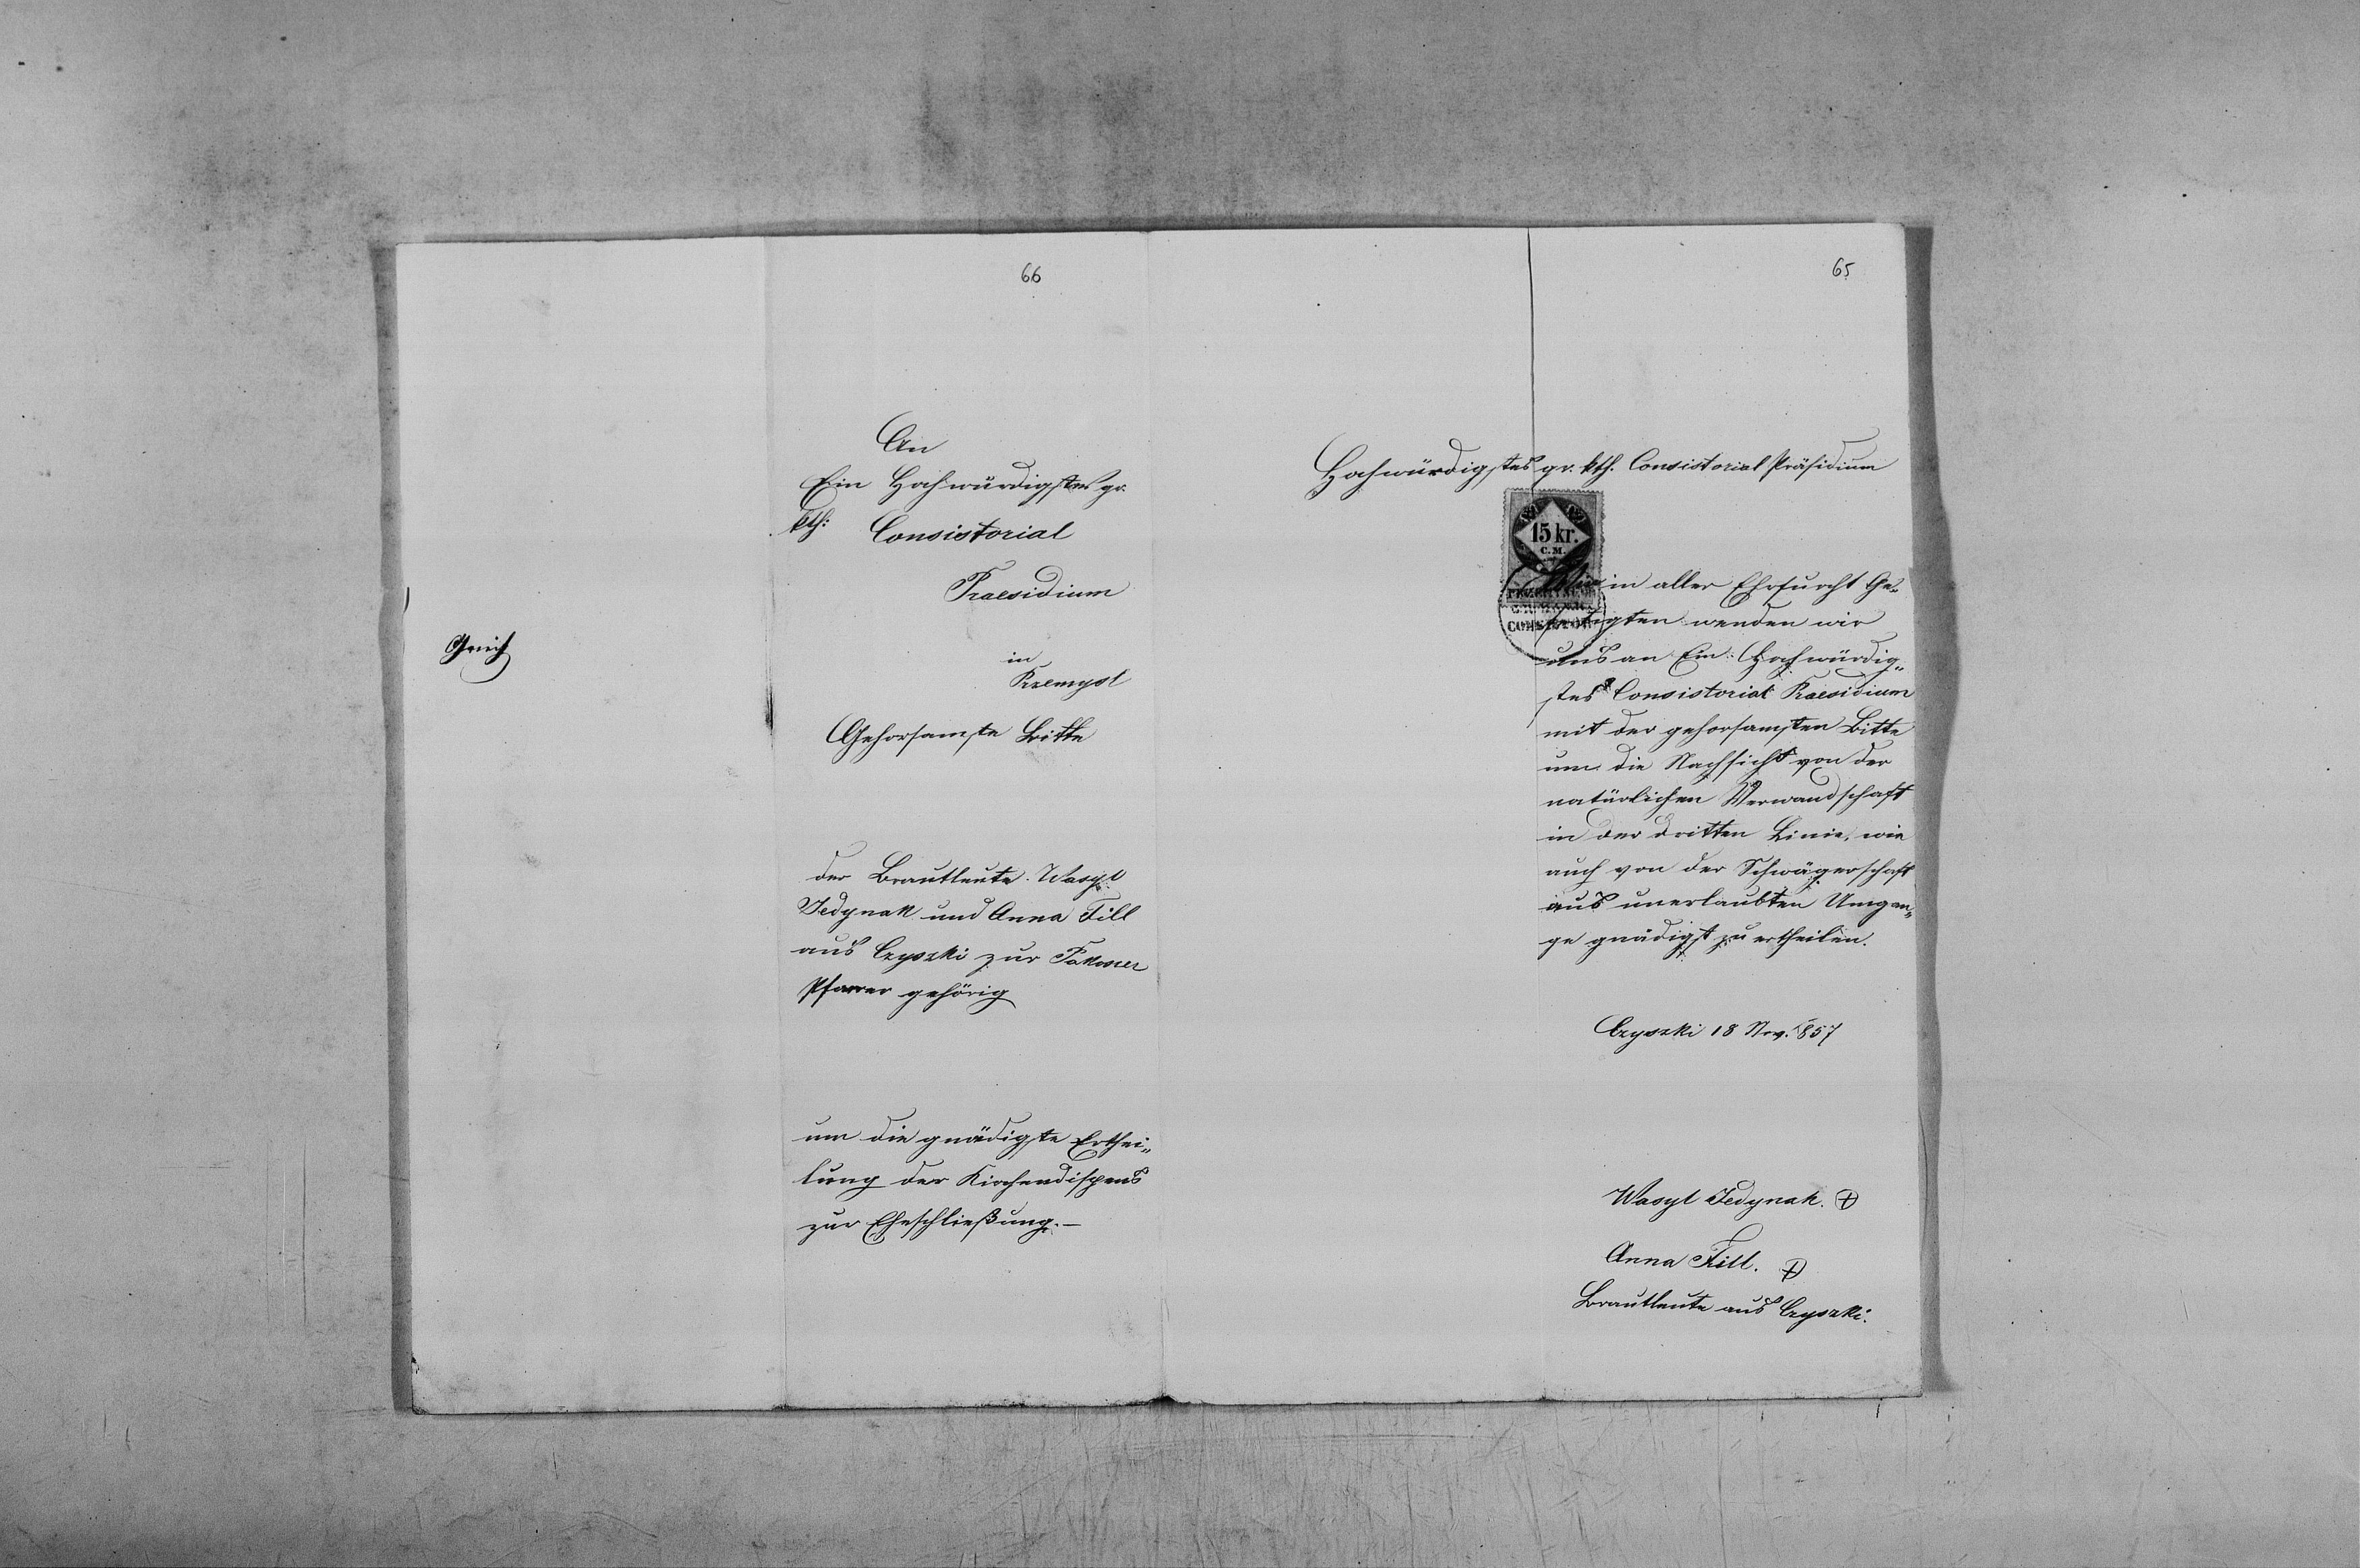 66
An
Ein Hochwürdigstes gr.
kth: Consistorial
Praesidium
in
Przemysl
Gehorsamste Bitte
der Brautleute Wasyl
Jedynak und Anna Till
aus Czyszki zur
Pfarrer gehörig
um die gnädigste Erthei„
lung der Kirchendispens
zur Eheschließung.—
65
Hochwürdigstes gr. kth. Consistorial Präsidium
15 kr.
C.M.
CONSISTOR
in aller Ehrfurcht Ge„
fertigten wenden wir
uns an Ein: Hochwürdig„
stes Consistorial Praesidium
mit der gehorsamsten Bitte
um die Nachsicht von der
natürlichen Verwandschaft
in der dritten Linie, wie
auch von der Schwägerschaft
aus unerlaubten Umgan„
ge gnädigst zu ertheilen.
Czyszki 18 Nov. 857
Wasyl Jedynak. +
Anna Till. +
Brautleute aus Czyszki.